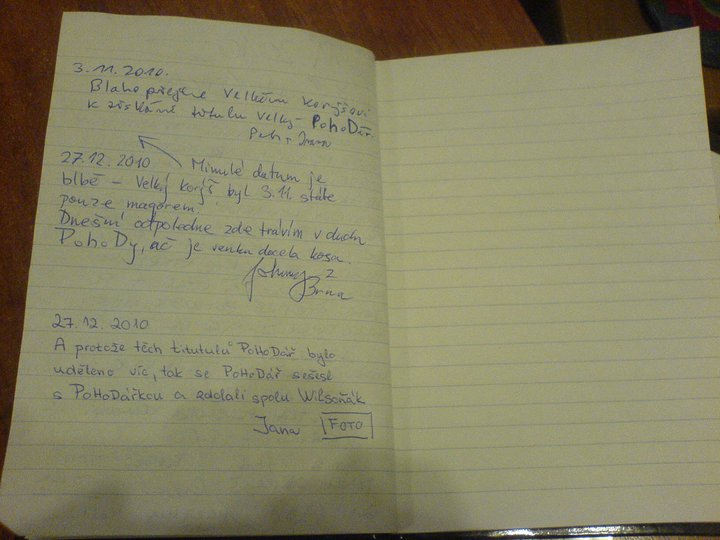 3. 11. 2010.
Blahopřejeme velkému korýšovi
k získání titulu velký PoHoDář.
Petr
27.12. 2010 Minulé datum je
blbě – Velký korýš byl 3.11. stále
pouze magorem.
Dnešní odpoledne zde trávím v duchu
PohoDy, ač je venku docela kosa.
z
Brna
27 12. 2010
A protože těch titutulů PoHoDář bylo
uděleno víc, tak se PoHoDář sešel
s PoHoDářkou a zdolali spolu Wilsoňák
Jana FOTO